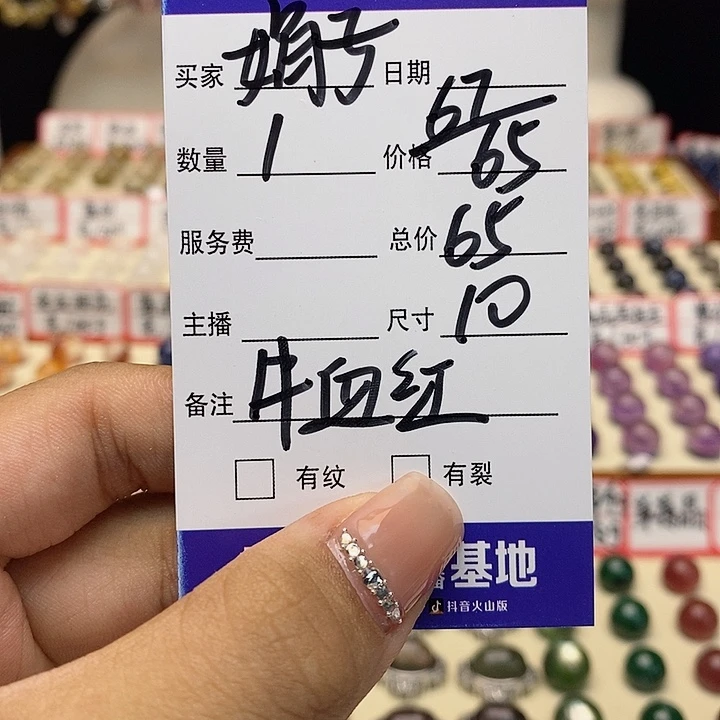 买家 娟子 日期
数量 1 价格 67/65
服务费 总价 65
主播 尺寸 10
备注 牛血红
有纹 有裂
播基地
抖音火山版